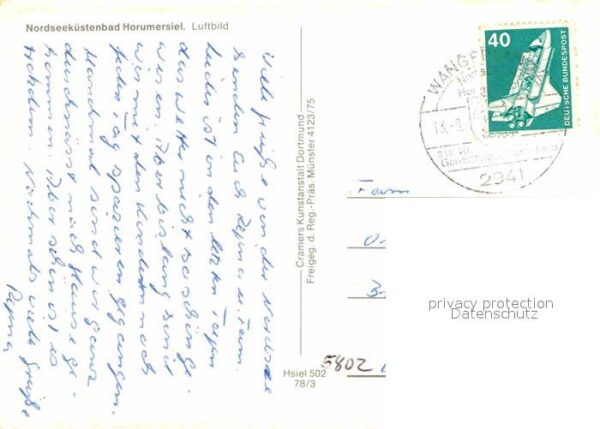 Nordseeküstenbad Horumersiel. Luftbild
Viele Grüße von der Nordsee
senden Euch Regina u. Fam.
Leider ist in den letzten Tagen
das Wetter nicht so schön ge-
wesen. Aber bislang sind
wir mit den Kindern noch
jeden Tag spazieren gegangen.
Manchmal sind wir ganz
durchnäst nach Hause ge-
kommen. Aber schön ist es
trotzdem. Nochmals viele Grüße
Regina
Cramers Kunstanstalt Dortmund
Freigeg. d. Reg.-Präs. Münster 4123/75
Hsiel 502
78/3
40
DEUTSCHE BUNDESPOST
WANGE
13.-9.
2941
Fam
5802
privacy protection
Datenschutz